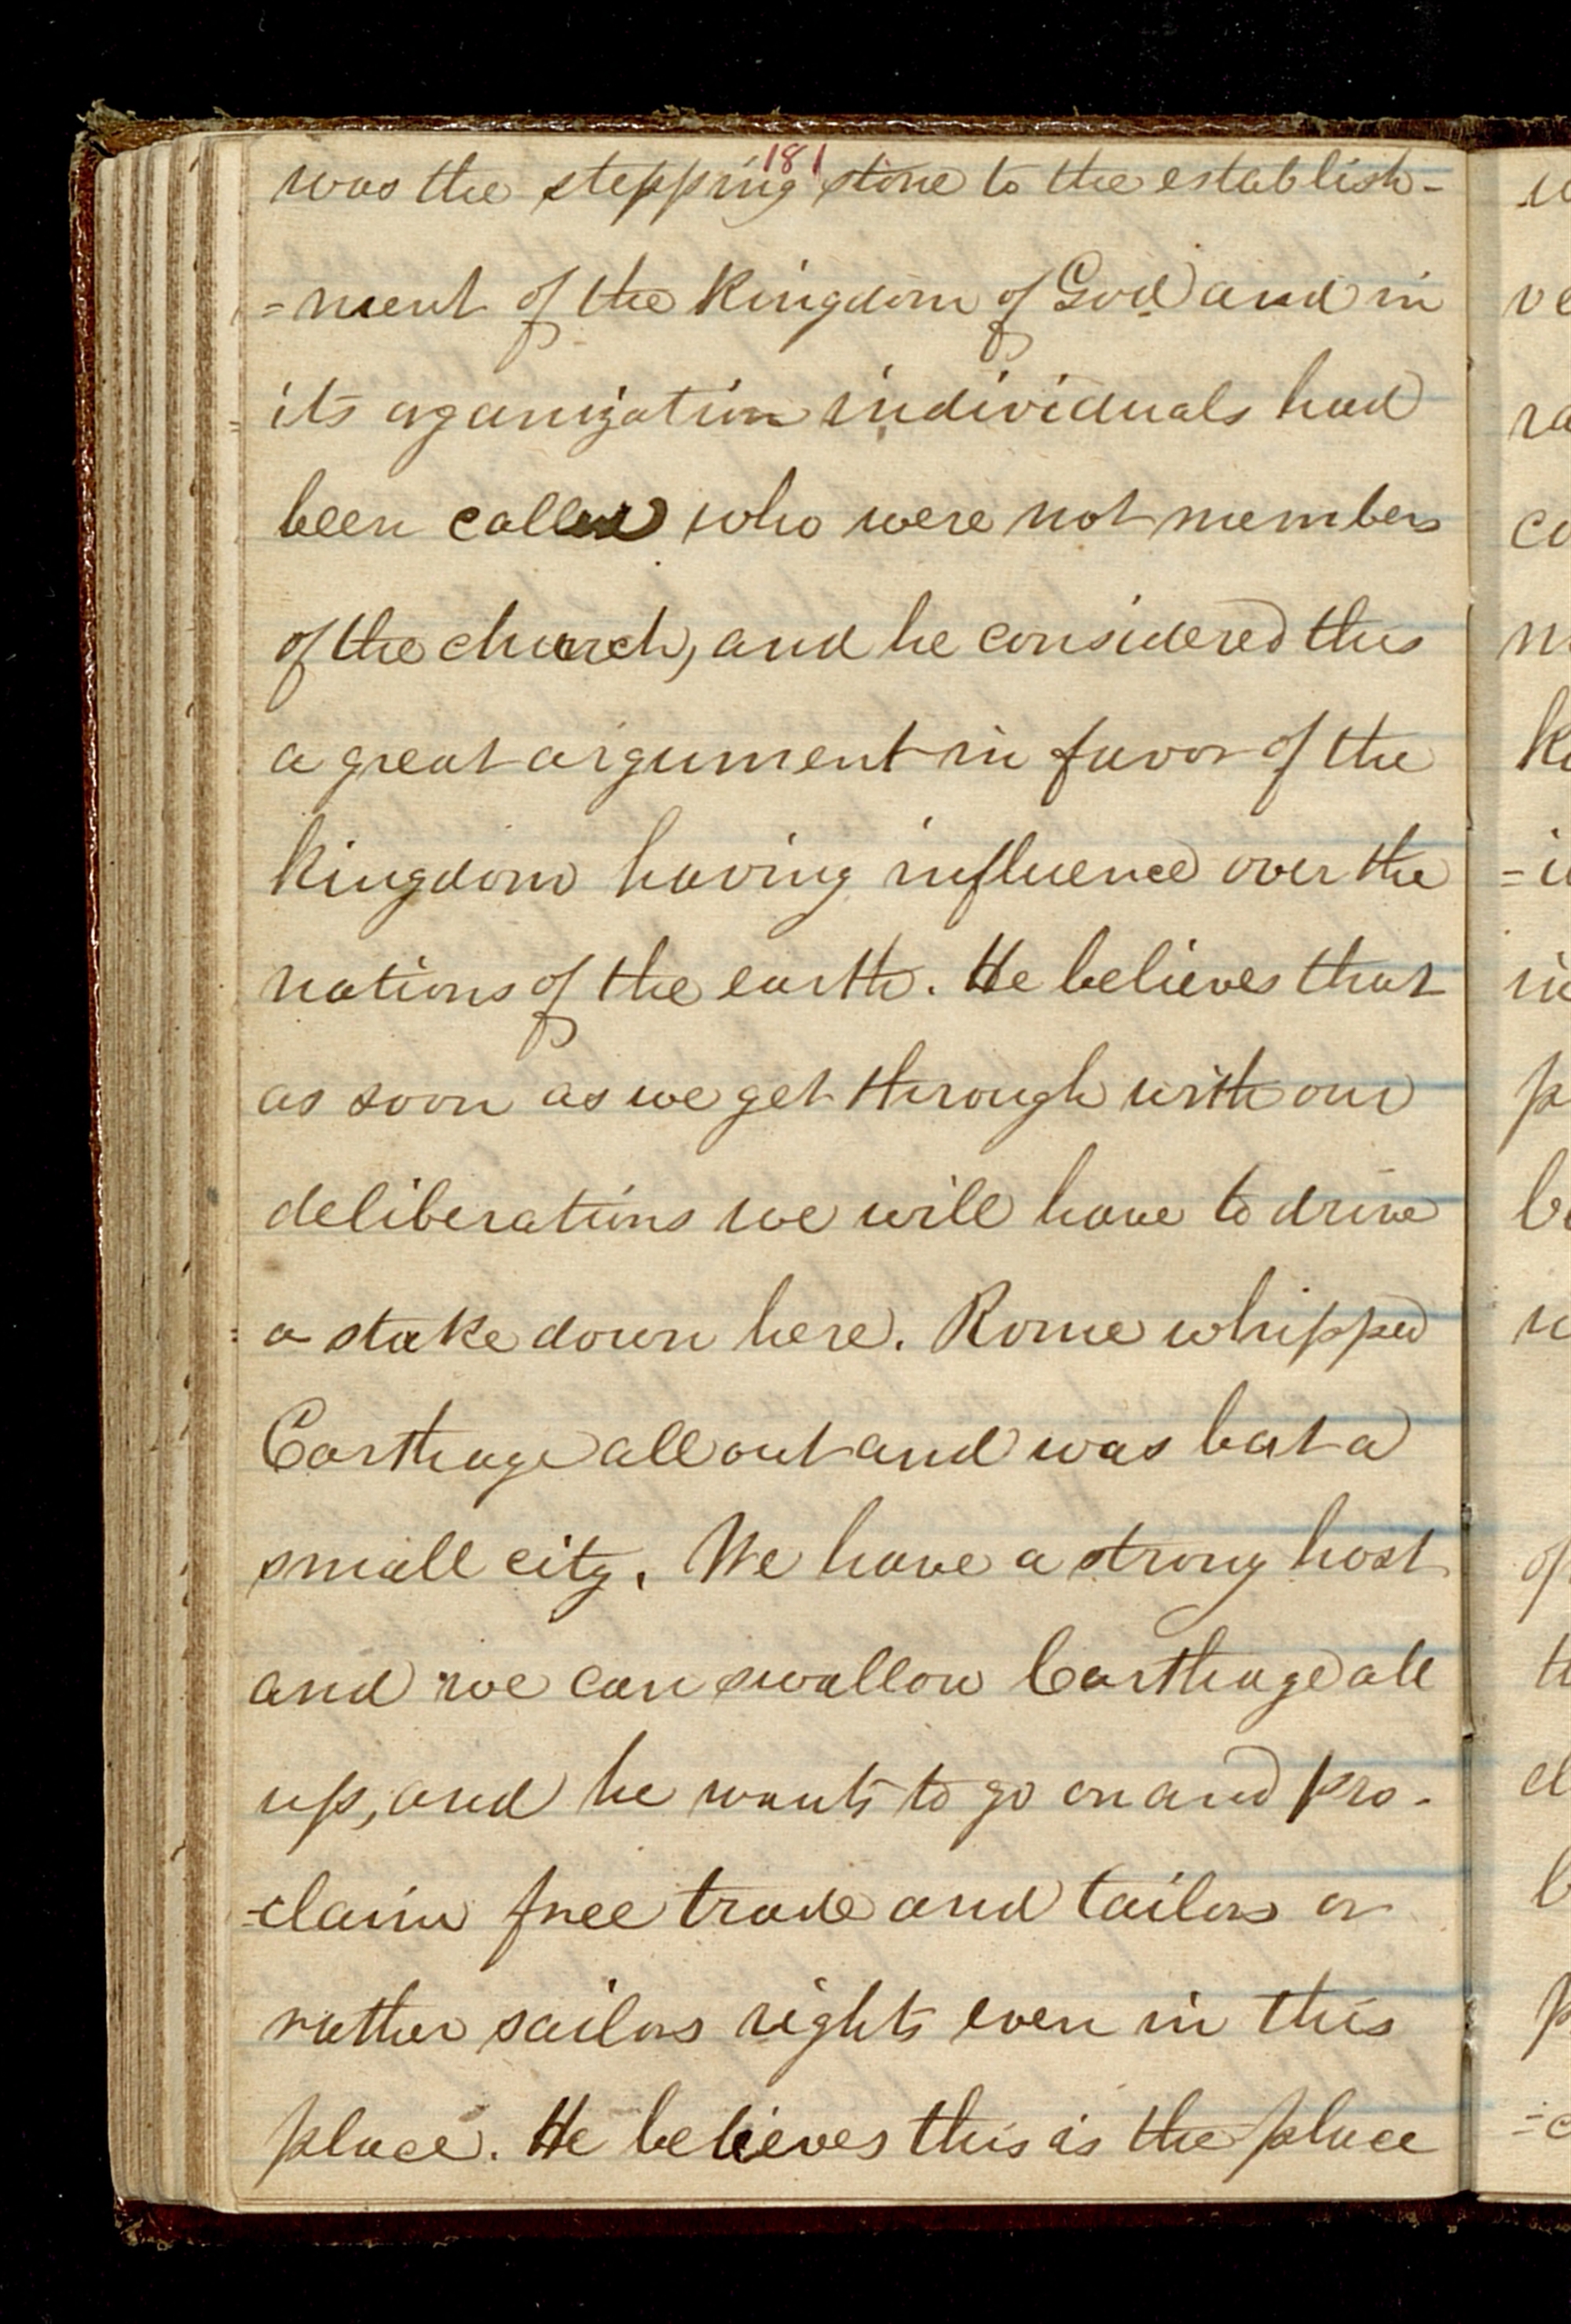 181
was the stepping stone to the establish-
=ment of the Kingdom of God and in
its organization individuals had
been called who were not members
of the church, and he considered this
a great argument in favor of the
Kingdom having influence over the
nations of the earth. He believes that
as soon as we get through with our
deliberations we will have to drive
a stake down here. Rome whipped
Carthage all out and was but a
small city. We have a strong host
and we can swallow Carthage all
up, and he wants to go on and pro-
=claim free trade and tailors or
rather sailors rights even in this
place. He believes this is the place